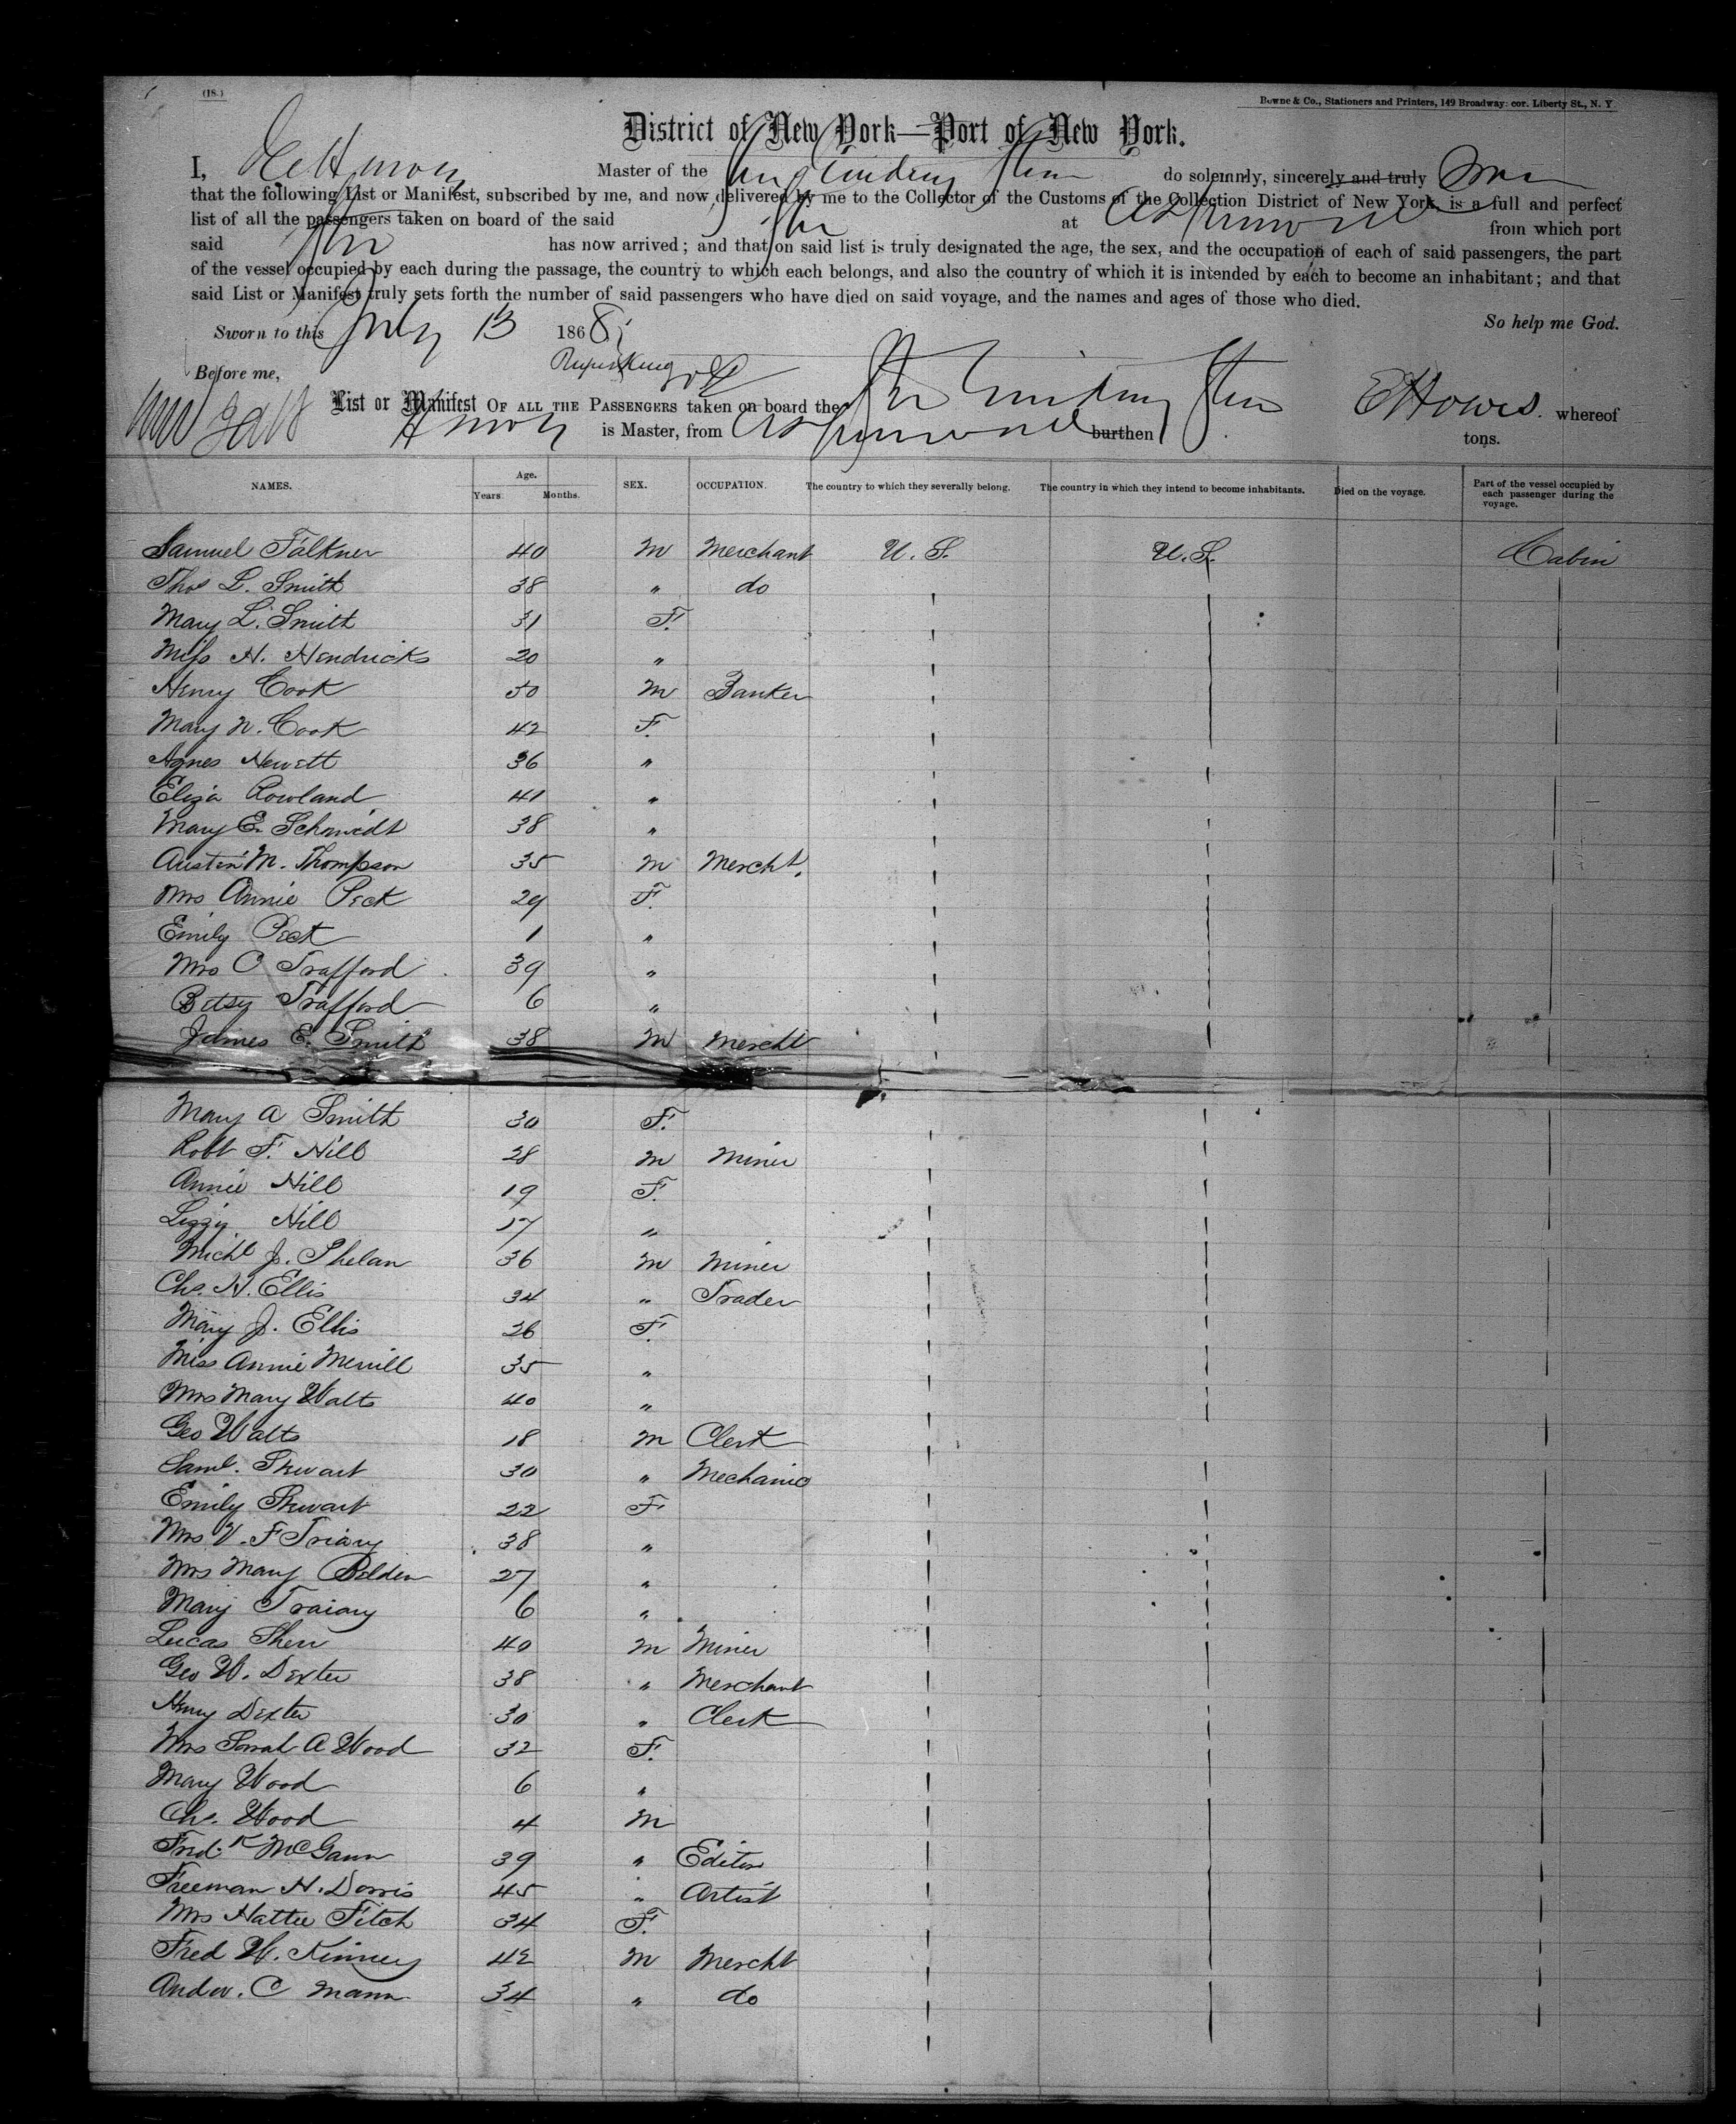 (18.)
Bowne & Co., Stationers and Printers, 149 Broadway: cor. Liberty St., N. Y
District of New York—Port of New York.
I, Master of the do solemnly, sincerely and truly
that the following List or Manifest, subscribed by me, and now delivered by me to the Collector of the Customs of the Collection District of New York, is a full and perfect
list of all the passengers taken on board of the said at from which port
said has now arrived; and that on said list is truly designated the age, the sex, and the occupation of each of said passengers, the part
of the vessel occupied by each during the passage, the country to which each belongs, and also the country of which it is intended by each to become an inhabitant; and that
said List or Manifest truly sets forth the number of said passengers who have died on said voyage, and the names and ages of those who died.
So help me God.
Sworn to this July 13 1868
Before me,
List or Manifest OF ALL THE PASSENGERS taken on board the whereof
is Master, from burthen tons.
NAMES. Age. Years. Months. SEX. OCCUPATION. The country to which they severally belong. The country in which they intend to become inhabitants. Died on the voyage. Part of the vessel occupied by each passenger during the voyage.
Samuel Falkner 40 M Merchant U. S. U. S. Cabin
Thos L. Smith 38 " do
Mary L. Smith 31 F.
Miss H. Hendricks 20 "
Henry Cook 50 M Banker
Mary N. Cook 42 F.
Agnes Hewett 36 "
Eliza Rowland 41 "
Mary E. Schmidt 38 "
Austin M. Thompson 35 M Mercht.
Mrs Annie Peck 29 F.
Emily Peck 1 "
Mrs C Trafford 39 "
Betsy Trafford 6 "
James E. Smith 38 M Mercht
Mary A Smith 30 F.
Robt F. Hill 28 M Miner
Annie Hill 19 F.
Lizzy Hill 17 "
Michl J. Phelan 36 M Miner
Chs. H. Ellis 34 " Trader
Mary J. Ellis 26 F.
Miss Annie Merrill 35 "
Mrs Mary Walts 40 "
Geo Walts 18 M Clerk
Saml. Stewart 30 " Mechanic
Emily Stewart 22 F
Mrs V. F 38 "
Mrs Mary Belden 27 "
Mary 6 "
Lucas 40 M Miner
Geo W. Dexter 38 " Merchant
Henry Dexter 30 " Clerk
Mrs Sarah A Wood 32 F.
Mary Wood 6 "
Chs. Wood 4 M
Fredk McGann 39 " Editor
Freeman H. Dorris 45 " Artist
Mrs Hattie Fitch 34 F.
Fred W. Kinney 42 M Mercht
Andw. C Mann 34 " do